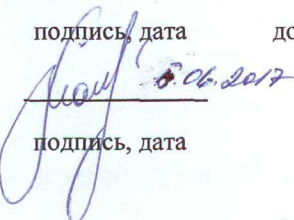 подпись, дата до
06.2017
подпись, дата